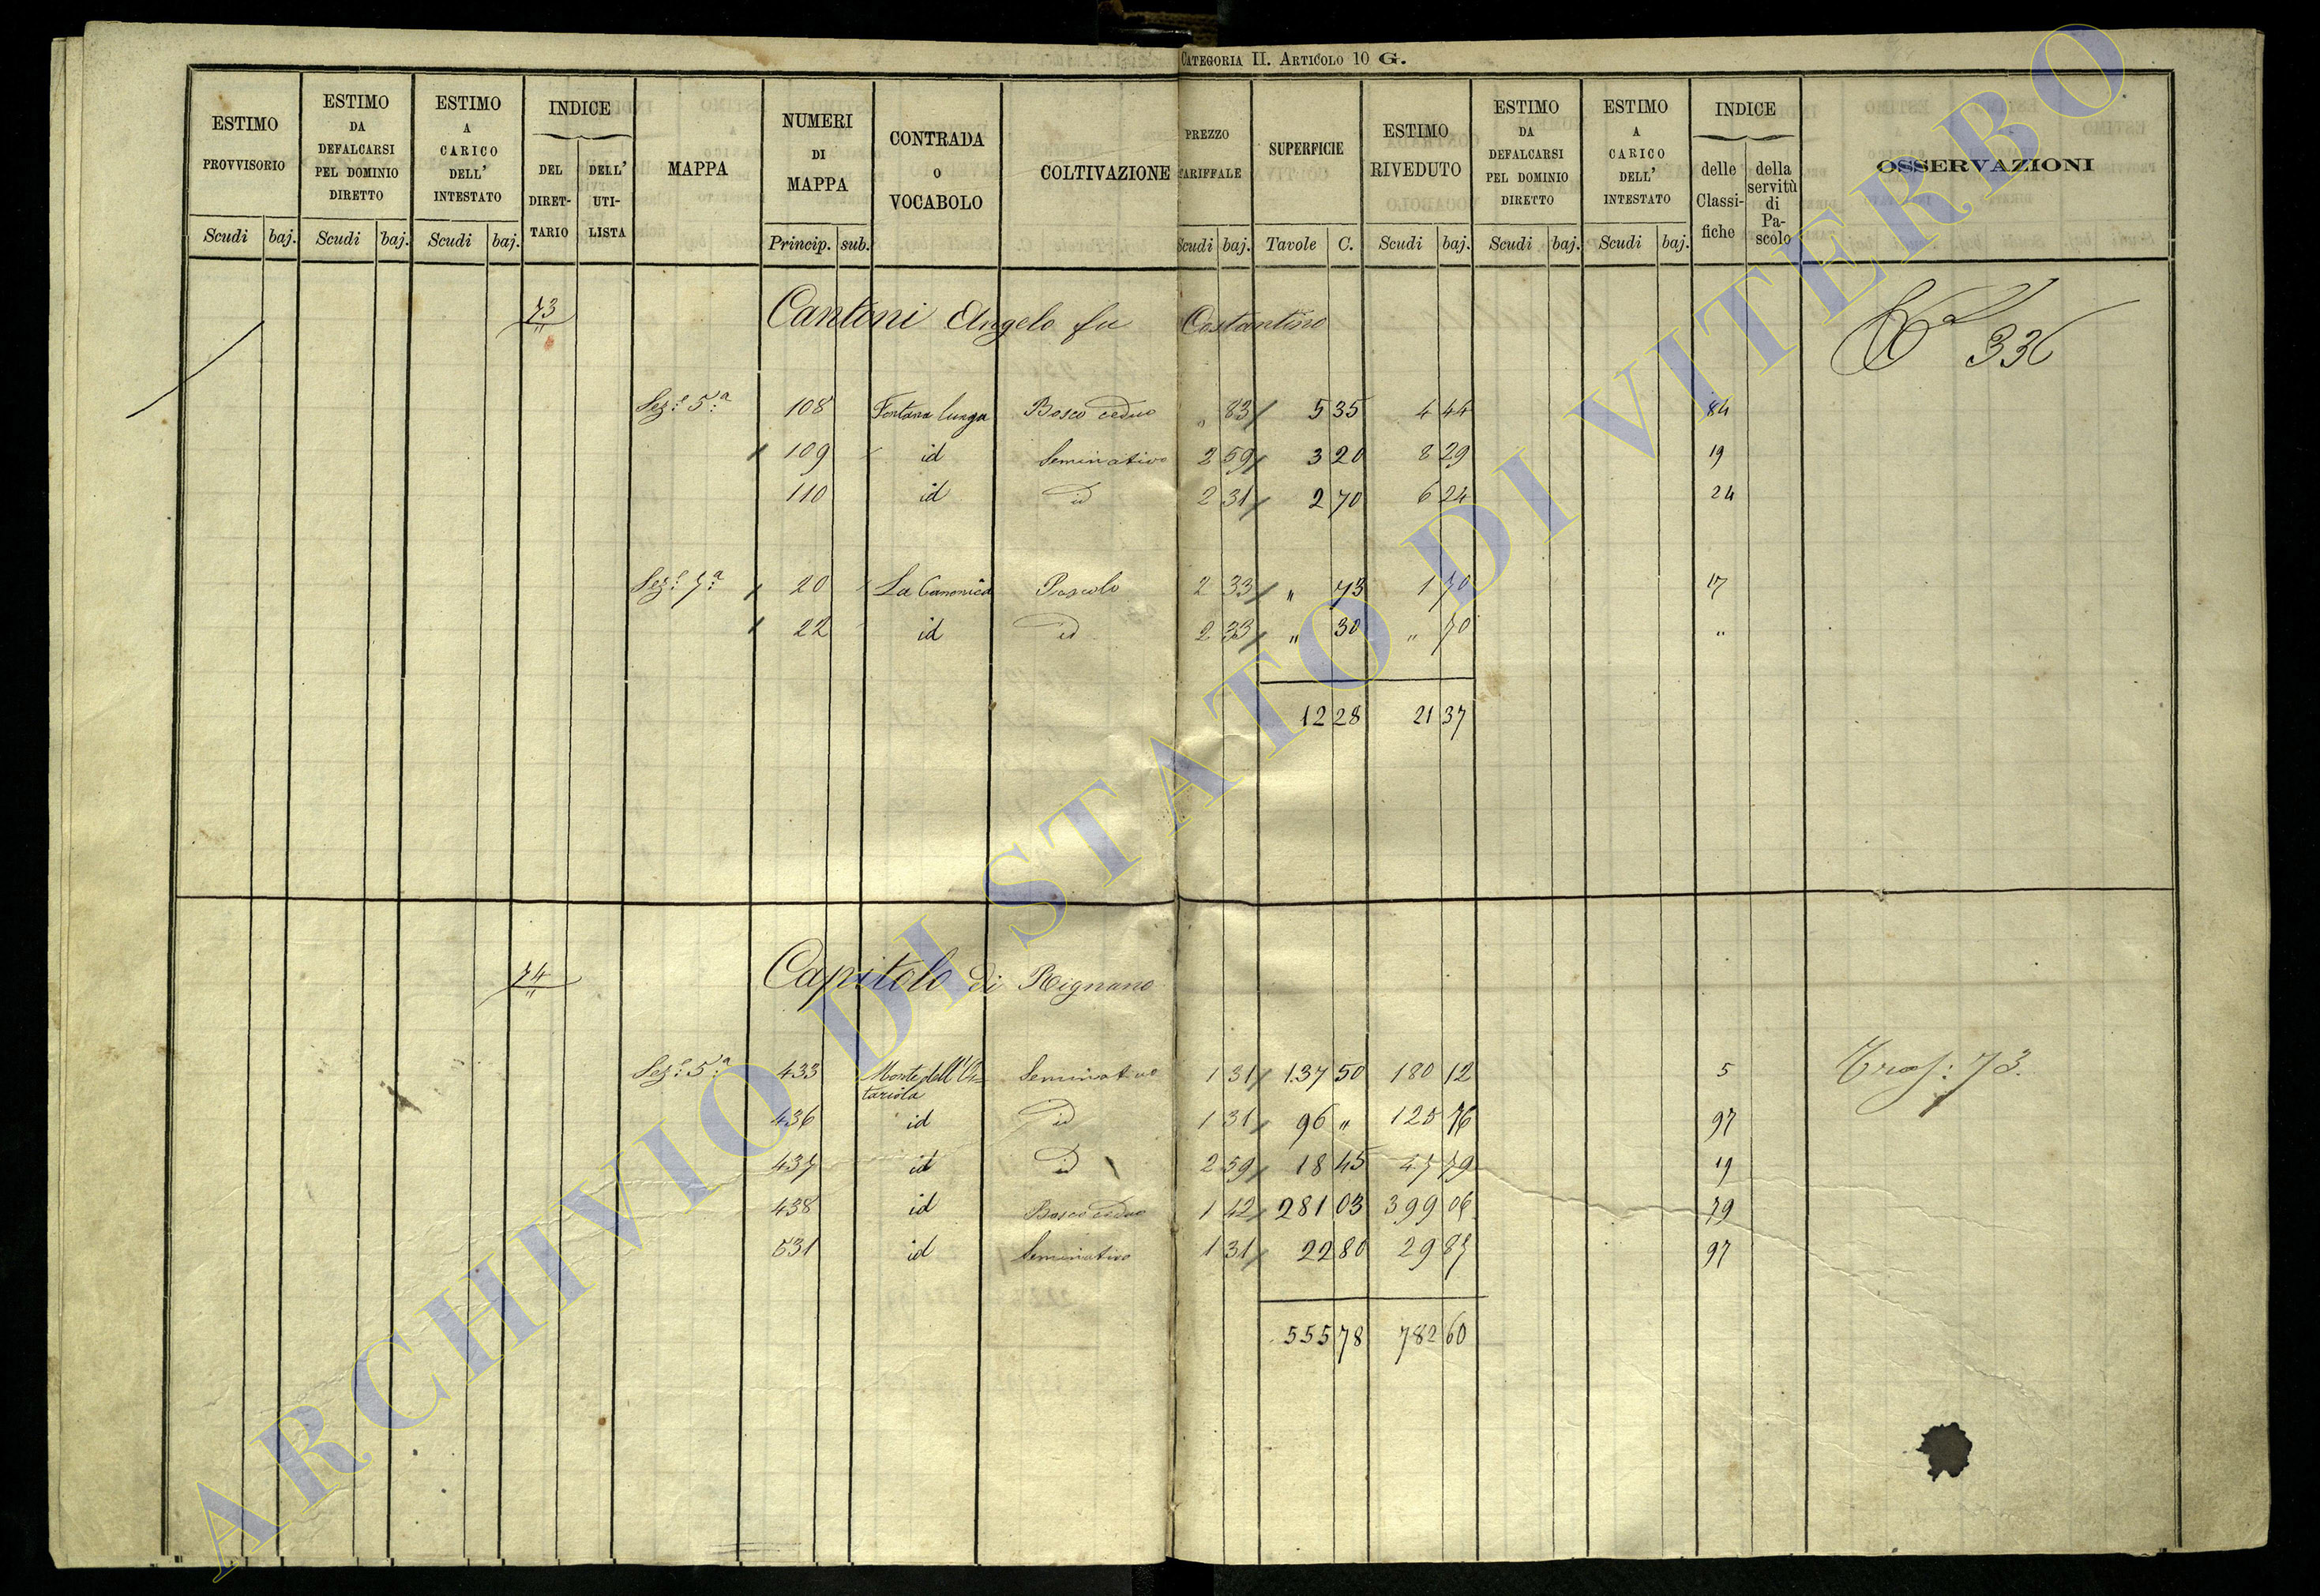 CATEGORIA II. ARTICOLO 10 G.
ESTIMO PROVVISORIO Scudi baj.
ESTIMO DA DEFALCARSI PEL DOMINIO DIRETTO Scudi baj.
ESTIMO A CARICO DELL' INTESTATO Scudi baj.
INDICE DEL DIRET- TARIO DELL' UTI- LISTA
MAPPA
NUMERI DI MAPPA Princip. sub.
CONTRADA O VOCABOLO
COLTIVAZIONE
PREZZO TARIFFALE Scudi baj.
SUPERFICIE Tavole C.
ESTIMO RIVEDUTO Scudi baj.
ESTIMO DA DEFALCARSI PEL DOMINIO DIRETTO Scudi baj.
ESTIMO A CARICO DELL' INTESTATO Scudi baj.
INDICE delle Classi- fiche della servitù di Pa- scolo
OSSERVAZIONI
73 Cantoni Angelo fu Costantino 336
Sez:e 5:a 108 Fontana lunga Bosco ceduo " 83 5 35 4 44 84
109 id Seminativo 2 59 3 20 8 29 19
110 id id 2 31 2 70 6 24 24
Sez:e 7:a 20 La Canonica Pascolo 2 33 " 73 1 70 17
22 id id 2 33 " 30 " 70 "
12 28 21 37
74 Capitolo di Rignano
Sez:e 5:a 433 Seminativo 1 31 137 50 180 12 5 Trasf: 73.
tariola
436 id id 1 31 96 " 125 76 97
437 id id 2 59 18 45 47 79 19
438 id Bosco ceduo 1 42 281 03 399 06 79
531 id Seminativo 1 31 22 80 29 87 97
555 78 782 60
ARCHIVIO DI STATO DI VITERBO